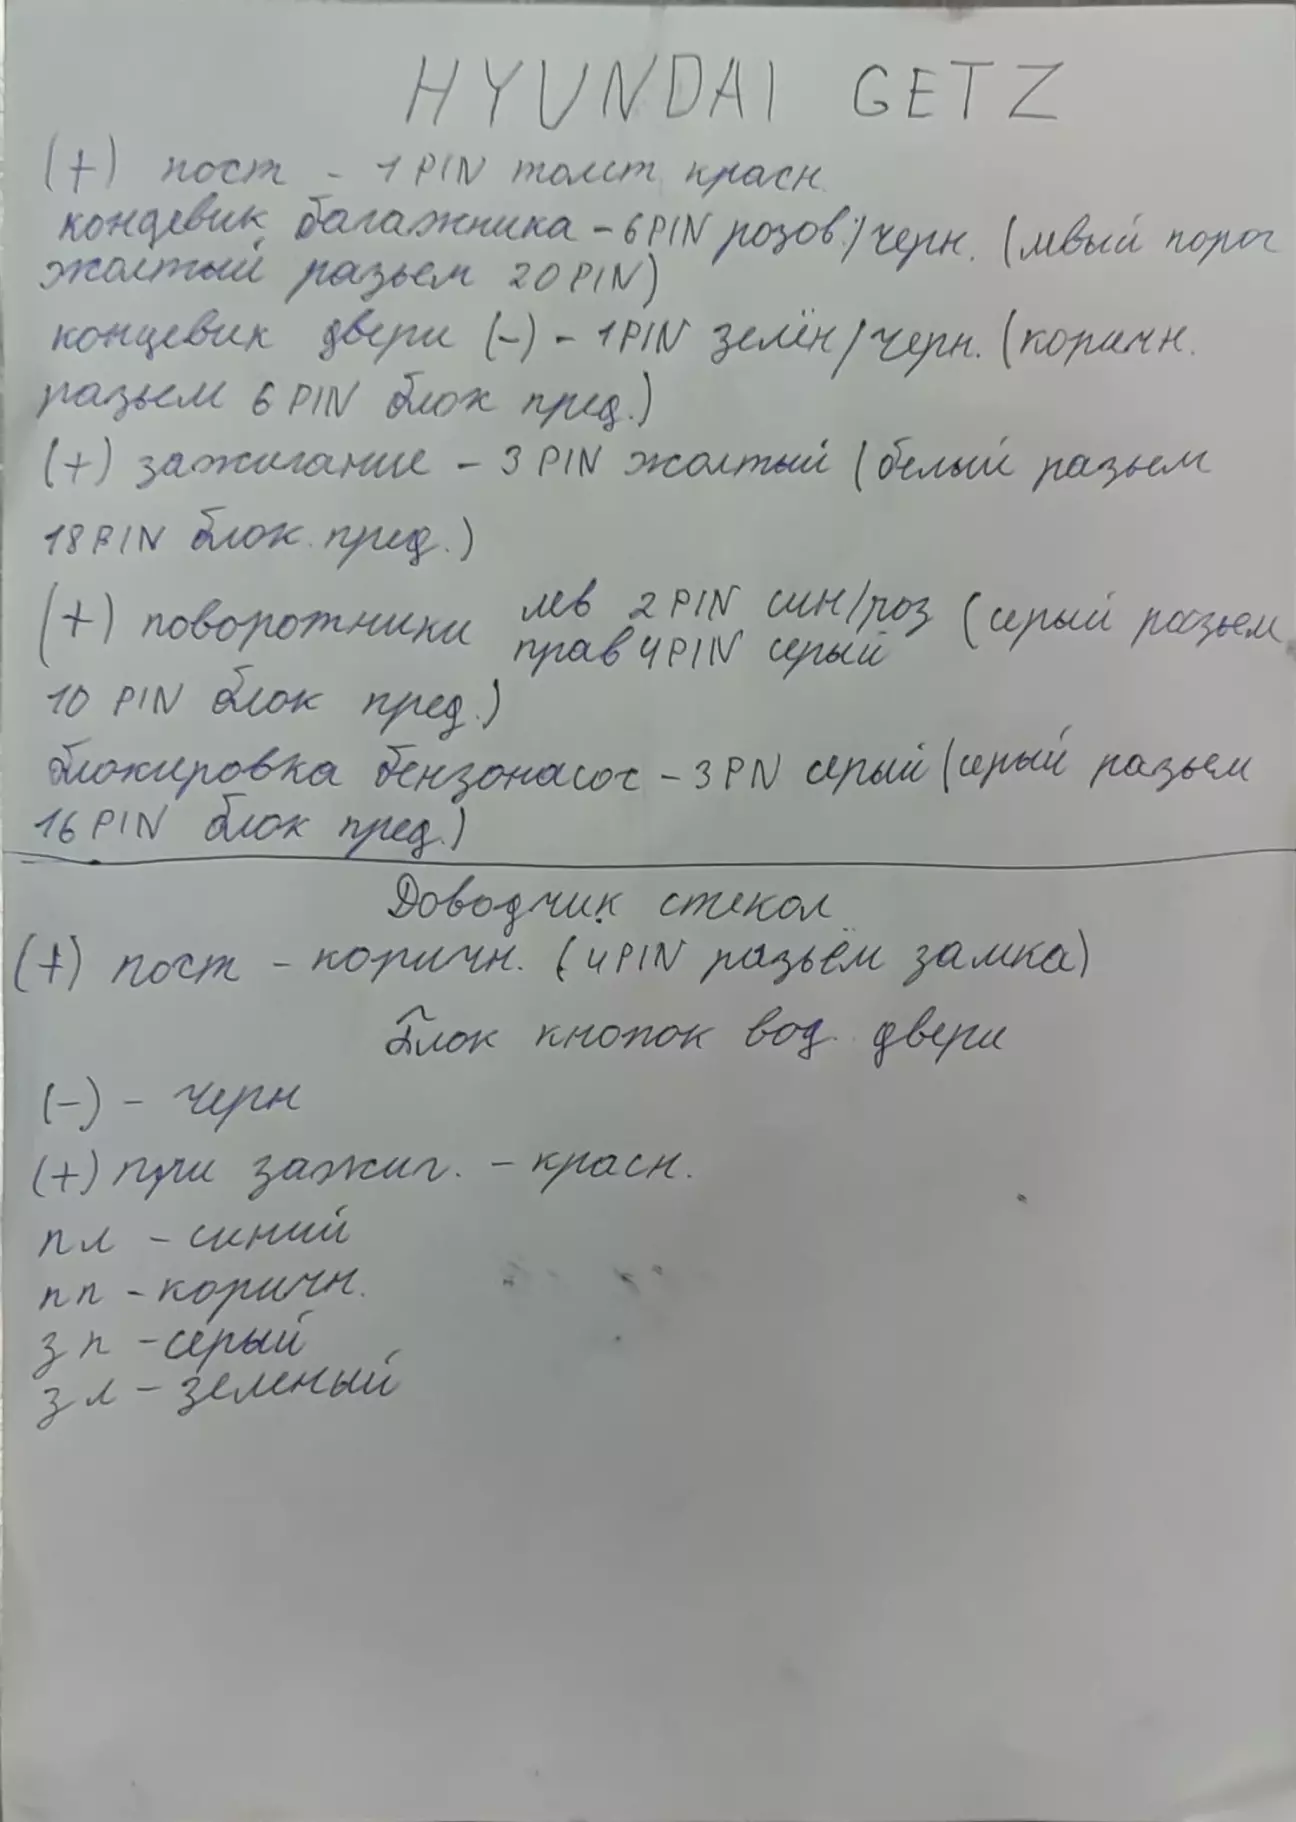 HYUNDAI GETZ
(+) пост - 1 PIN толст красн.
концевик багажника - 6 PIN розов./черн. (левый порог
жолтый разьем 20 PIN)
концевик двери (-) - 1 PIN зелён/черн. (коричн.
разьем 6 PIN блок пред.)
(+) зажигание - 3 PIN жолтый (белый разьем
18 PIN блок. пред.)
(+) поворотники лев 2 PIN син/роз (серый разьем
прав 4 PIN серый
10 PIN блок пред.)
блокировка бензонасос - 3 PN серый (серый разьем
16 PIN блок пред.)
Доводчик стекол
(+) пост - коричн. (4 PIN разьём замка)
Блок кнопок вод. двери
(-) - черн
(+) при зажиг. - красн.
пл - синий
пп - коричн.
зп - серый
зл - зеленый